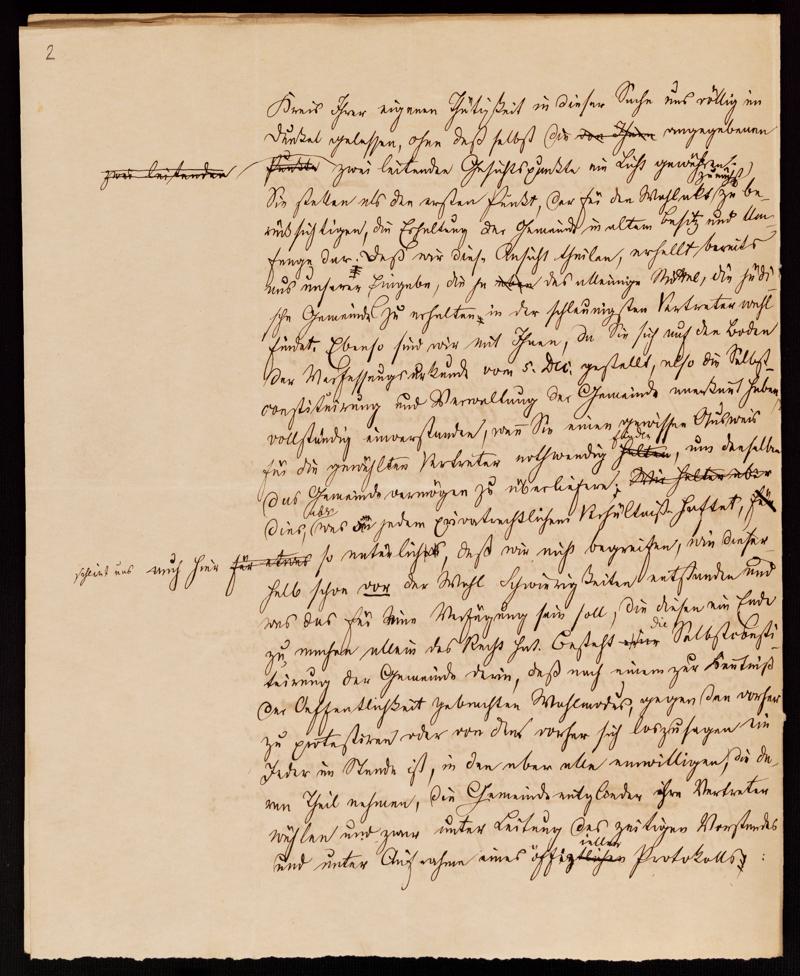 2
Kreis Ihrer eigenen Thätigkeit in dieser Sache uns völlig im
Dunkel gelassen, ohne daß selbst die von Ihnen angegebenen
zwei leitenden Punkte zwei leitenden Gesichtspunkte ein Licht gewähren.
zunächst
Sie stellen als den ersten Punkt, der für den Wahlakt zu be-
rücksichtigen, die Erhaltung der Gemeinde in altem Besitz und Um-
fange dar. Daß wir diese Ansicht theilen, erhellt bereits
aus unserer Eingabe, die ja eben das alleinige Mittel, die jüdi-
sche Gemeinde zu erhalten, in der schleunigsten Vertreterwahl
findet. Ebenso sind wir mit Ihnen, da Sie sich auf den Boden
der Verfassungsurkunde vom 5. Dec. gestellt, also die Selbst-
constituirung und Verwaltung der Gemeinde anerkannt haben
vollständig einverstanden, wenn Sie einen gewissen Ausweis
für die gewählten Vertreter nothwendig halten, um denselben
das Gemeindevermögen zu überliefern; Wir halten aber
dies, was an jedem privatrechtlichen Verhältniß haftet, für
aber
scheint uns auch hier für etwas so natürliches, daß wir nicht begreifen, wie dieser-
halb schon vor der Wahl Schwierigkeiten entstanden und
was das für eine Verfügung sein soll, die diesen ein Ende
zu machen allein das Recht hat. Besteht die Selbstconsti-
tuirung der Gemeinde darin, daß nach einem zur Kenntniß
der Oeffentlichkeit gebrachten Wahlmodus, gegen den vorher
zu protestiren oder von dem vorher sich loszusagen ein
Jeder im Stande ist, in den aber alle einwilligen, die da-
ran Theil nehmen, die Gemeindemitglieder ihre Vertreter
wählen und zwar unter Leitung des zeitigen Vorstandes
und unter Aufnahme eines öffentlichen Protokolls: